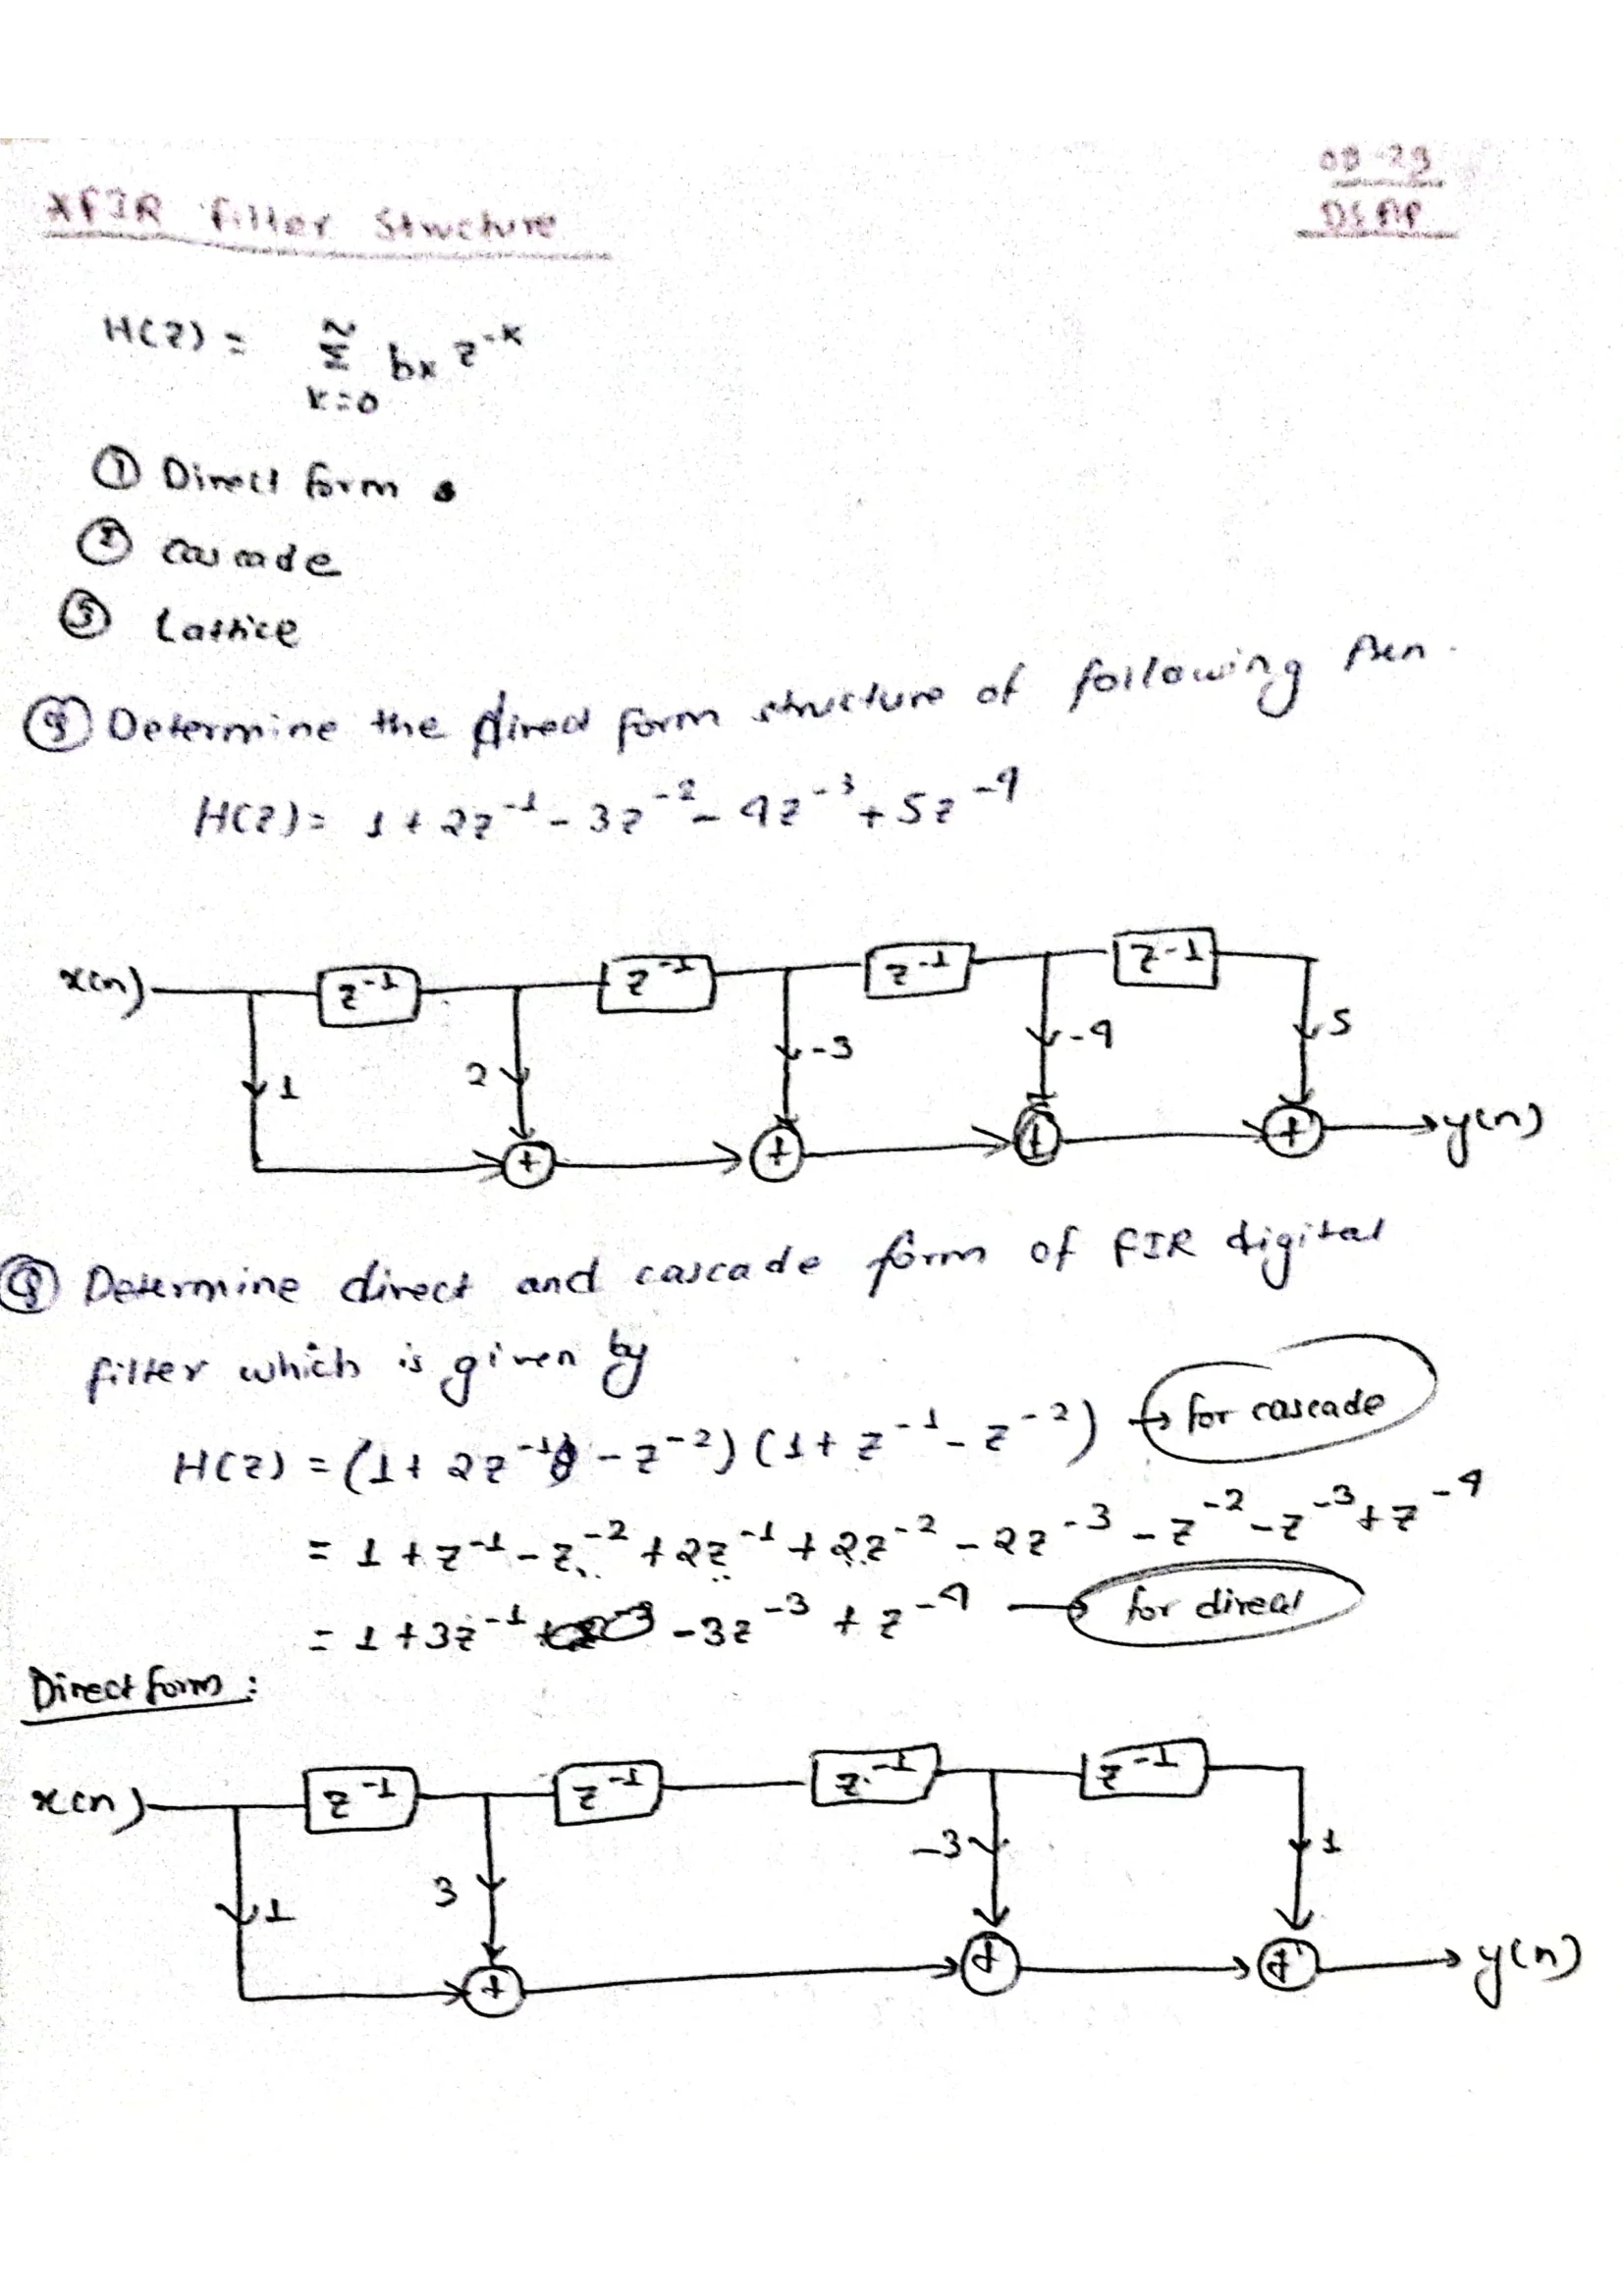 08-29
DSAP
*FIR filter Structure
H(z) = N Σ k=0 bk z^-k
① Direct form
② cascade
③ Lattice
Q Determine the direct form structure of following
H(z) = 1 + 2z^-1 - 3z^-2 - 4z^-3 + 5z^-4
x(n) z^-1 z^-1 z^-1 z^-1
1 2 -3 -4 5
+ + + + y(n)
Q Determine direct and cascade form of FIR digital
filter which is given by
H(z) = (1 + 2z^-1 - z^-2) (1 + z^-1 - z^-2) → for cascade
= 1 + z^-1 - z^-2 + 2z^-1 + 2z^-2 - 2z^-3 - z^-2 - z^-3 + z^-4
= 1 + 3z^-1 - 3z^-3 + z^-4 → for direct
Direct form :
x(n) z^-1 z^-1 z^-1 z^-1
1 3 -3 1
+ + + y(n)